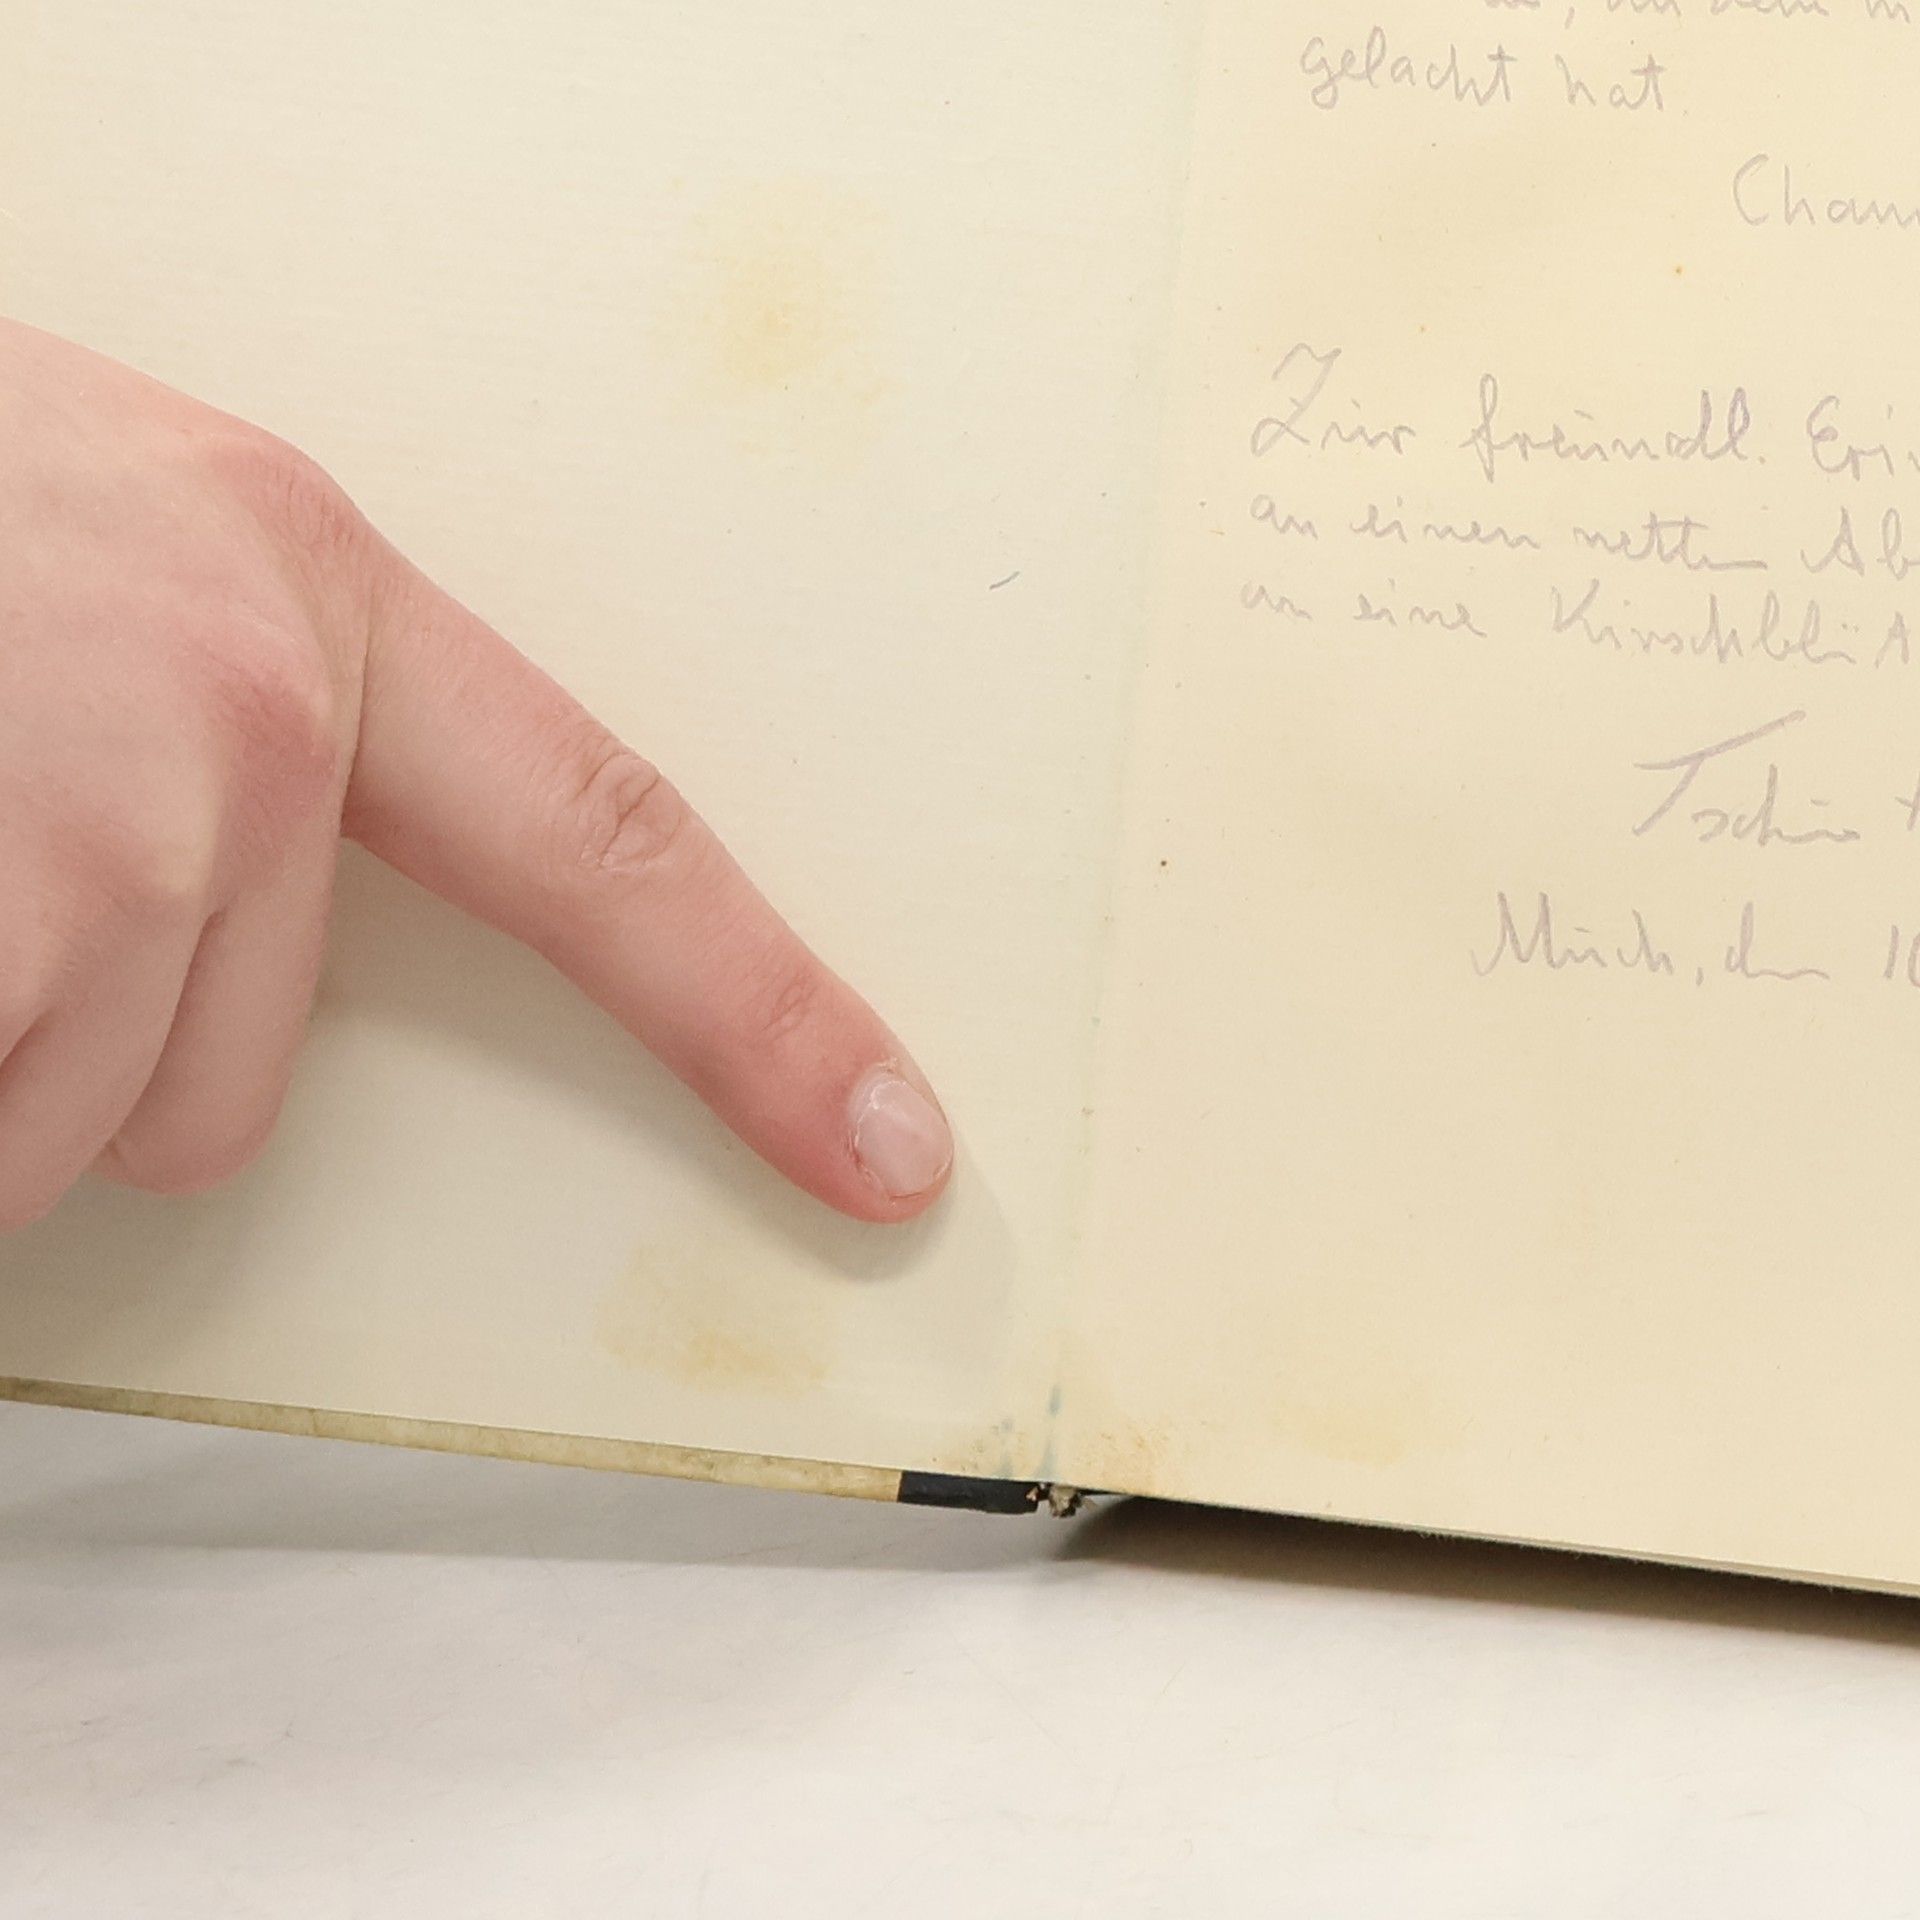 gelacht hat
Cham
Zur freundl. Erin
an einen netten Ab
an eine Kirschblüt
Münch, den 16